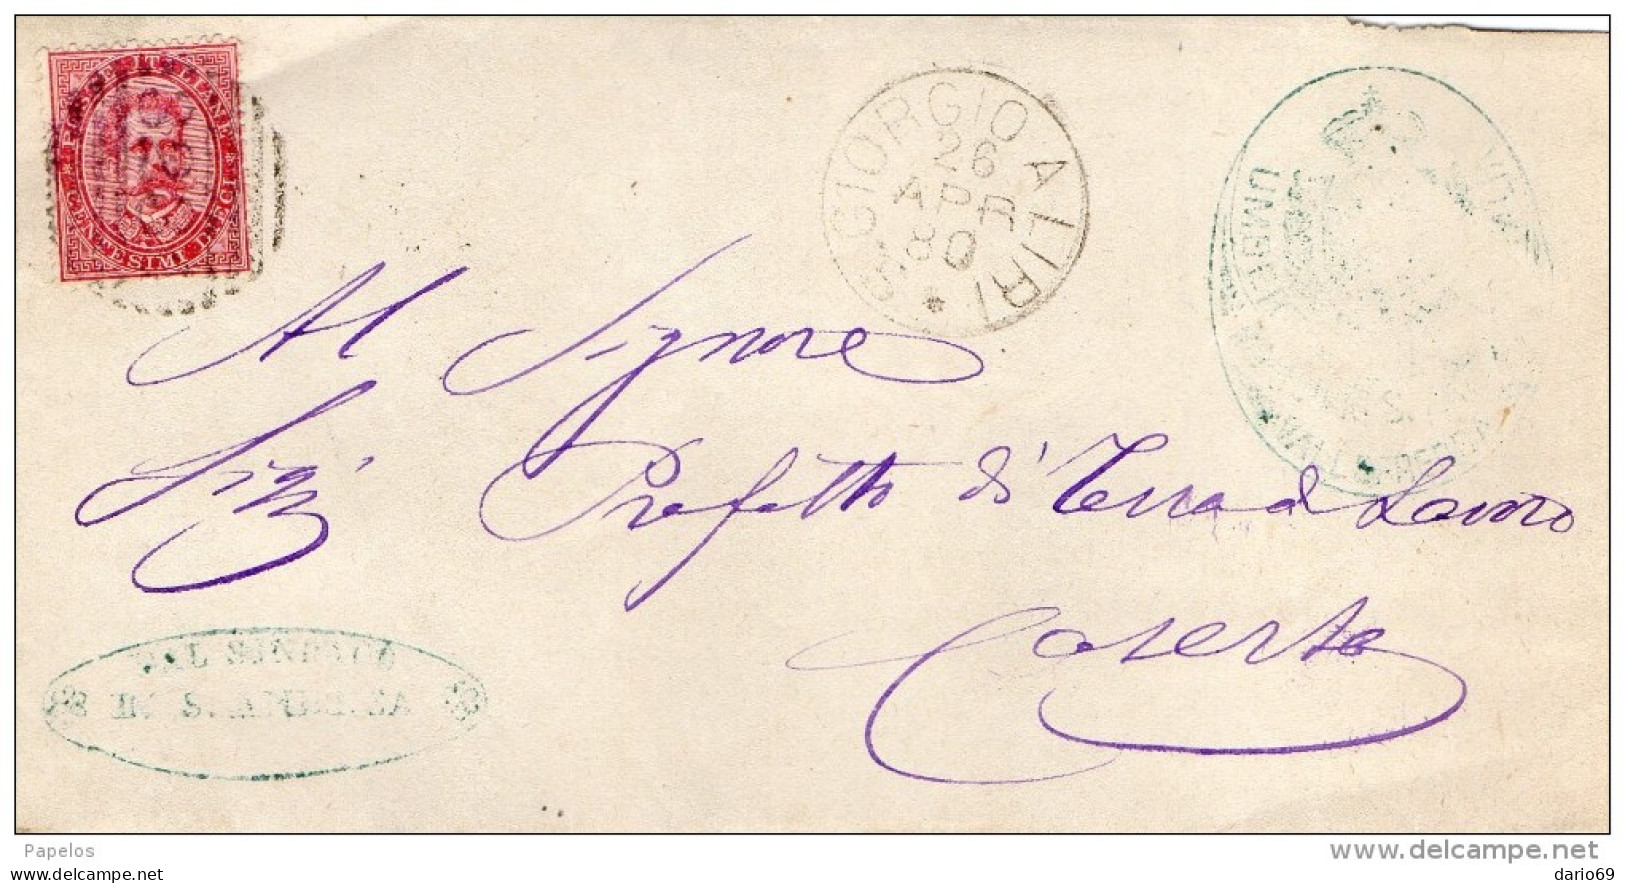 POSTE ITALIANE
CENTESIMI DIECI
S. GIORGIO A LIRI
26
APR
80
UMBERTO
Al Signore
Sig. Prefetto di Terra di Lavoro
Caserta
DAL SINDACO
IN S. ANDREA
Papelos
www.delcampe.net
dario69